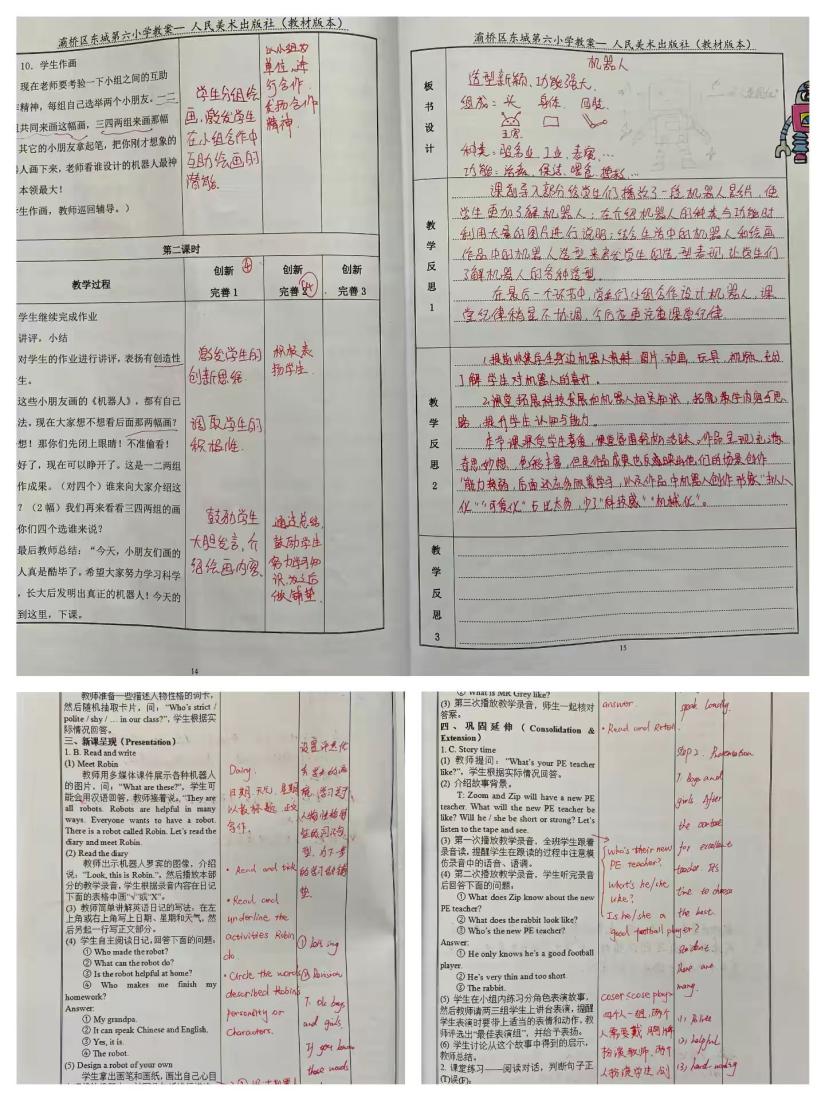 灞桥区东城第六小学教案— 人民美术出版社（教材版本）
10．学生作画
现在老师要考验一下小组之间的互助
精神，每组自己选举两个小朋友。一二
共同来画这幅画，三四两组来画那幅
其它的小朋友拿起笔，把你刚才想象的
人画下来，老师看谁设计的机器人最神
本领最大！
生作画，教师巡回辅导。）
学生分组绘
画，激发学生
在小组合作中
互助绘画的
潜能。
以小组为
单位，进
行合作
发扬合作
精神．
第二课时
教学过程
创新
完善 1
创新
完善 2
创新
完善 3
学生继续完成作业
讲评，小结
对学生的作业进行讲评，表扬有创造性
生。
这些小朋友画的《机器人》，都有自己
法。现在大家想不想看后面那两幅画？
想！那你们先闭上眼睛！不准偷看！
好了，现在可以睁开了。这是一二两组
作成果。（对四个）谁来向大家介绍这
？（2 幅）我们再来看三四两组的画
你们四个选谁来说？
最后教师总结：“今天，小朋友们画的
人真是酷毕了。希望大家努力学习科学
，长大后发明出真正的机器人！今天的
到这里，下课。
激发学生的
创新思维．
调取学生的
积极性．
鼓励学生
大胆发言，介
绍绘画内容
积极表
扬学生．
通过总结，
鼓励学生
努力学习知
识，为之后
做铺垫
14
灞桥区东城第六小学教案— 人民美术出版社（教材版本）
板书设计
机器人
造型新颖、功能强大．
组成：头 身体 四肢．
种类：服务业、工业、表演、…
教学反思 1
课前导入部分给学生们播放了一段机器人影片，使
学生更加了解机器人；在介绍机器人的种类与功能时
利用大量的图片进行说明；结合生活中的机器人和绘画
作品中的机器人造型来启发学生的造型表现，让学生们
了解机器人的各种造型．
在最后一个环节中，学生们小组合作设计机器人，课
堂纪律稍显不协调，今后应更注重课堂纪律
教学反思 2
1.提前收集学生身边机器人素材 图片、动画、玩具、视频，充分
了解学生对机器人的喜好。
2.课堂拓展科技发展和机器人相关知识，拓宽教学内容与思
路，提升学生认知与能力。
教学反思 3
15
教师准备一些描述人物性格的词卡，
然后随机抽取卡片，问：“Who's strict /
polite / shy / … in our class?”，学生根据实
际情况回答。
三、新课呈现（Presentation）
1. B. Read and write
(1) Meet Robin
教师用多媒体课件展示各种机器人
的图片，问：“What are these?”，学生可
能会用汉语回答，教师接着说：“They are
all robots. Robots are helpful in many
ways. Everyone wants to have a robot.
There is a robot called Robin. Let's read the
diary and meet Robin.
(2) Read the diary
教师出示机器人罗宾的图像，介绍
说：“Look, this is Robin.”，然后播放本部
分的教学录音，学生根据录音内容在日记
下面的表格中画“√”或“X”。
(3) 教师简单讲解英语日记的写法：在左
上角或右上角写上日期、星期和天气，然
后另起一行写正文部分。
(4) 学生自主阅读日记，回答下面的问题：
① Who made the robot?
② What can the robot do?
③ Is the robot helpful at home?
④ Who makes me finish my
homework?
Answer:
① My grandpa.
② It can speak Chinese and English.
③ Yes, it is.
④ The robot.
(5) Design a robot of your own
学生拿出画笔和画纸，画出自己心目
Dairy.
日期、天气、星期
• Read and tick
• Read and
underline the
activities Robin
do.
• Circle the words
described Robin's
personality or
Characters.
and girls
If you know
these words
② What is MR Grey like?
(3) 第三次播放教学录音，师生一起核对
答案。
四、巩固延伸（Consolidation &
Extension）
1. C. Story time
(1) 教师提问：“What's your PE teacher
like?”，学生根据实际情况回答。
(2) 介绍故事背景。
T: Zoom and Zip will have a new PE
teacher. What will the new PE teacher be
like? Will he / she be short or strong? Let's
listen to the tape and see.
(3) 第一次播放教学录音，全班学生跟着
录音读，提醒学生在跟读的过程中注意模
仿录音中的语音、语调。
(4) 第二次播放教学录音，学生听完录音
后回答下面的问题：
① What does Zip know about the new
PE teacher?
② What does the rabbit look like?
③ Who's the new PE teacher?
Answer:
① He only knows he's a good football
player.
② He's very thin and too short.
③ The rabbit.
(5) 学生在小组内练习分角色表演故事，
然后教师请两三组学生上讲台表演，提醒
学生表演时要带上适当的表情和动作，教
师评选出“最佳表演组”，并给予表扬。
(6) 学生讨论从这个故事中得到的启示，
教师总结。
2. 课堂练习——阅读对话，判断句子正
answer.
• Read and Retell
who's their new
PE teacher?
What's he/she
like?
Is he/she a
good football player?
speak loudly.
Step 2. Presentation
T: Boys and
girls. After
the contest
for excellent
teacher. It's
time to choose
the best
student.
there are
many.
(1) Polite
(2) helpful
(3) hard-working